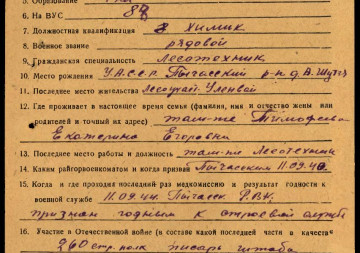 5. Образование
6. На ВУС 8
7. Должностная квалификация Химик
8. Военное звание рядовой
9. Гражданская специальность Лесотехник
10. Место рождения У.А.С.С.Р. р-н д.
11. Последнее место жительства
12. Где проживает в настоящее время семья (фамилия, имя и отчество жены или
родителей и точный их адрес) там-же Тимофеева
Екатерина Егоровна
13. Последнее место работы и должность там-же Лесотехник
14. Каким райгорвоенкоматом и когда призван 11.09.4
15. Когда и где проходил последний раз медкомиссию и результат годности к
военной службе 11.09.44. Р.В.К.
признан годным к строевой службе
16. Участие в Отечественной войне (в составе какой последней части в качеств
260 стр. полк писарь штаба